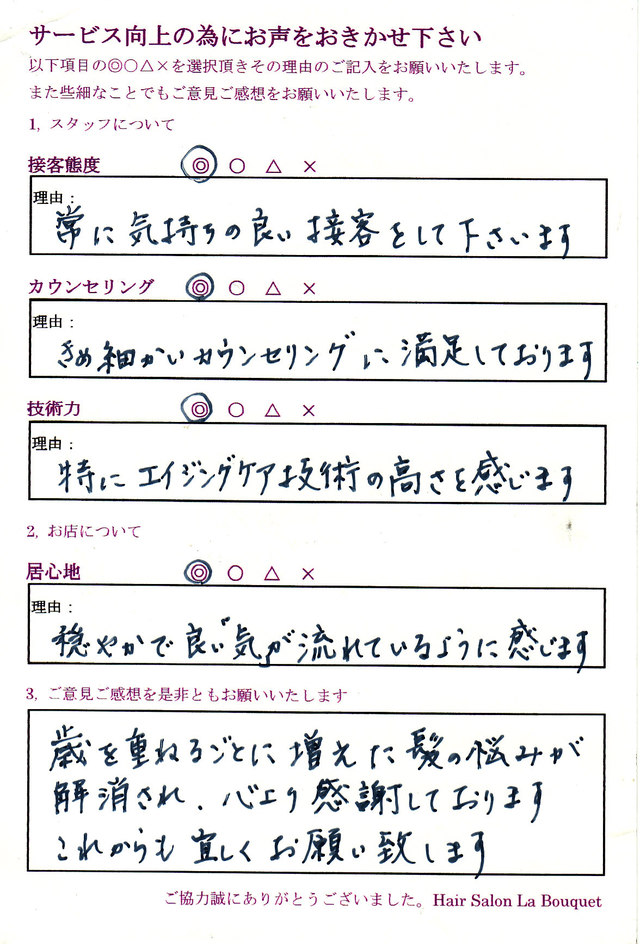 サービス向上の為にお声をおきかせ下さい
以下項目の◎○△×を選択頂きその理由のご記入をお願いいたします。
また些細なことでもご意見ご感想をお願いいたします。
1, スタッフについて
接客態度 ◎ ○ △ ×
理由：
常に気持ちの良い接客をして下さいます
カウンセリング ◎ ○ △ ×
理由：
きめ細かいカウンセリングに満足しております
技術力 ◎ ○ △ ×
理由：
特にエイジングケア技術の高さを感じます
2, お店について
居心地 ◎ ○ △ ×
理由：
穏やかで良い『気』が流れているように感じます
3, ご意見ご感想を是非ともお願いいたします
歳を重ねるごとに増えた髪の悩みが
解消され、心より感謝しております
これからも宜しくお願い致します
ご協力誠にありがとうございました。Hair Salon La Bouquet